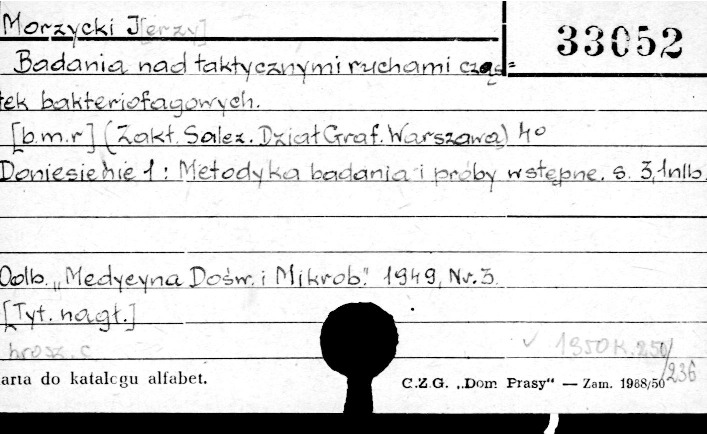 Morzycki J[erzy]
33052
Badania nad taktycznymi ruchami cząs=
tek bakteriofagowych.
[b.m.r] (Zakt. Salez. Dział Graf. Warszawa) 4o
Doniesienie 1: Metodyka badania i próby wstępne. s. 3, 1nlb.
Odb. „Medycyna Dośw. i Mikrob." 1949, Nr. 3.
[Tyt. nagł.]
brosz. c
1950 K. 250/236
arta do katalogu alfabet.
C.Z.G. „Dom Prasy" — Zam. 1968/50